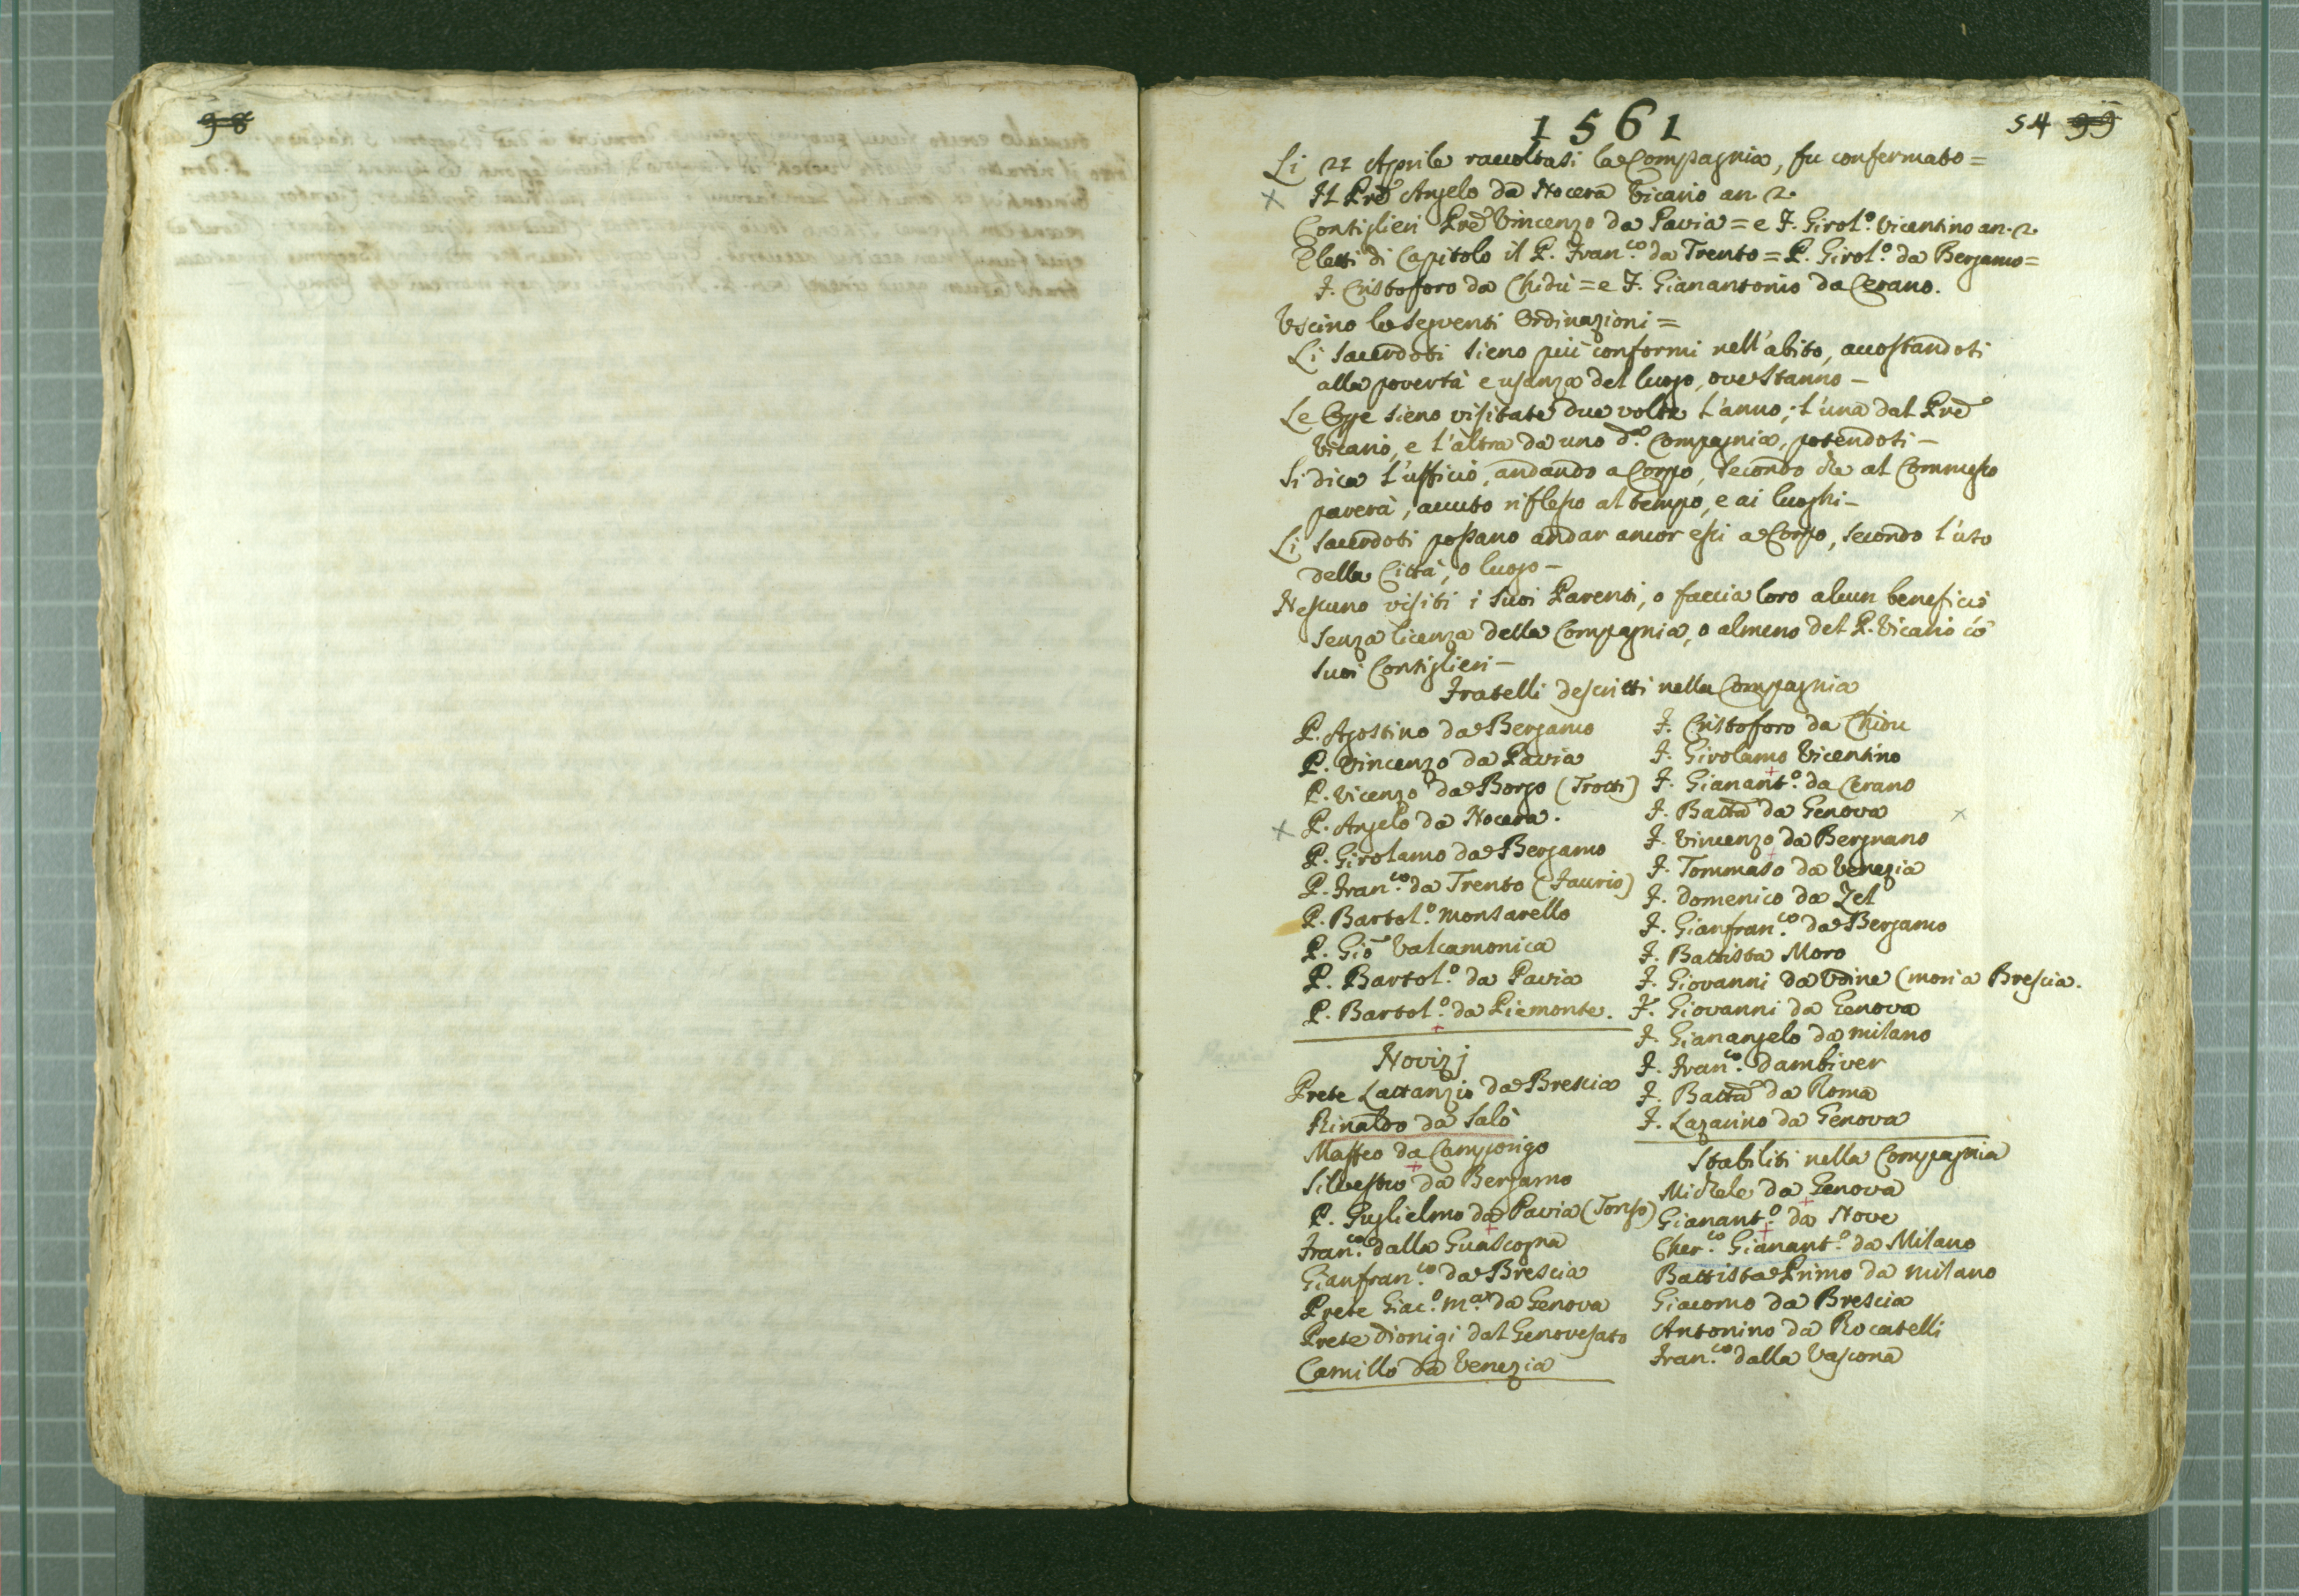 98
1561
54 99
Li 21 Aprile raccoltasi la Compagnia, fu confermato =
Il Prẽ Angelo da Nocera Vicario an. 2.
Consiglieri Prẽ Vincenzo da Pavia = e F. Girol.º Vicentino an. 2.
Eletti di Capitolo il P. Fran.co da Trento = P. Girol.º da Bergamo =
F. Cristoforo da Chidù = e F. Gianantonio da Cerano.
Uscino le seguenti Ordinazioni =
Li Sacerdoti sieno più conformi nell'abito, accostandosi
alla povertà e usanza del luogo, ove stanno –
Le Opp.e sieno visitate due volte l'anno; l'una dal Prẽ
Vicario, e l'altra da uno d.a Compagnia, potendosi –
Si dica l'ufficio, andando a Corpo, secondo che al Commesso
paverà, avuto riflesso al tempo, e ai luoghi –
Li Sacerdoti possano andar ancor essi a Corpo, secondo l'uso
della Città, o luogo –
Nessuno visiti i suoi Parenti, o faccia loro alcun beneficio
senza licenza della Compagnia, o almeno del P. Vicario cõ
suoi Consiglieri –
Fratelli descritti nella Compagnia
P. Agostino da Bergamo
P. Vincenzo da Pavia
P. Vicenzo da Borgo (Trotti)
P. Angelo da Nocera.
P. Girolamo da Bergamo
P. Fran.co da Trento (Faurio)
P. Bartol.º Monsarello
P. Giõ Valcamonica
P. Bartol.º da Pavia
P. Bartol.º da Piemonte.
Novizj
Prete Lattanzio da Brescia
Rinaldo da Salò
Maffeo da Campongo
Silvestro da Bergamo
P. Guglielmo da Pavia (Tonso)
Fran.co dalla Guascogna
Gianfran.co da Brescia
Prete Giac.º M.a da Genova
Prete Dionigi dal Genovesato
Camillo da Venezia
F. Cristoforo da Chidu
F. Girolamo Vicentino
F. Gianant.º da Cerano
F. Battã da Genova
F. Vincenzo da Bergnano
F. Tommaso da Venezia
F. Domenico da Zel
F. Gianfran.co da Bergamo
F. Battista Moro
F. Giovanni da Udine (morì a Brescia.
F. Giovanni da Genova
F. Gianangelo da Milano
F. Fran.co Dambiver
F. Battã da Roma
F. Lazarino da Genova
Stabiliti nella Compagnia
Michele da Genova
Gianant.º da Nove
Cher.co Gianant.º da Milano
Battista Primo da Milano
Giacomo da Brescia
Antonino da Rocatelli
Fran.co dalla Vascona